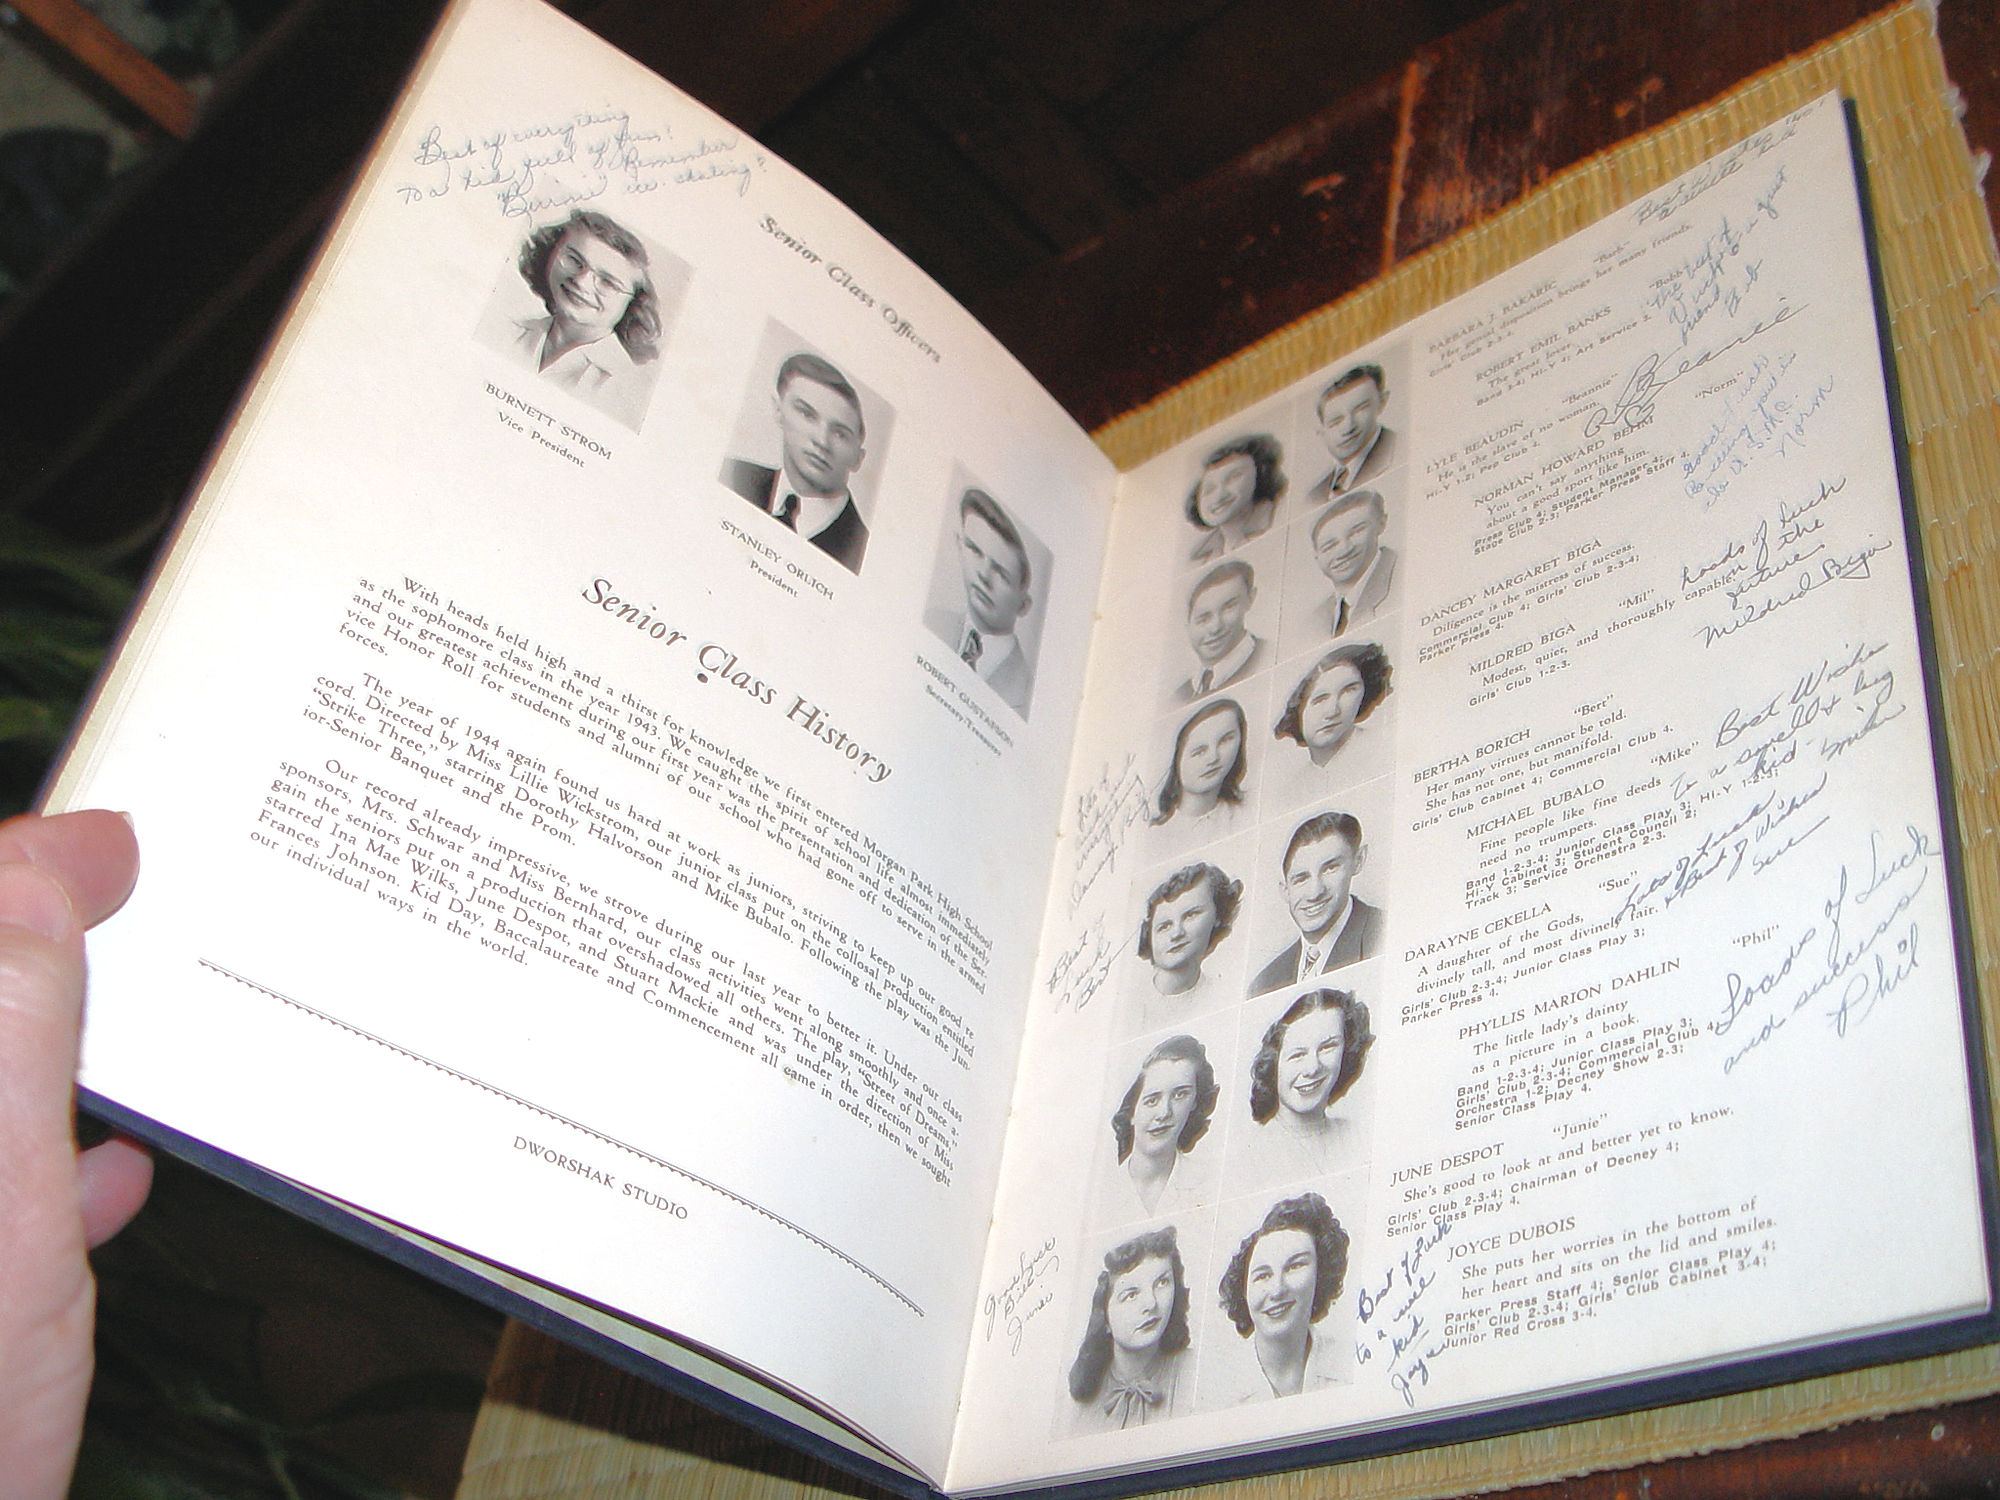 Best of everything
to a kid full of fun! Remember
"Burnie" ice skating?
Senior Class Officers
BURNETT STROM
Vice President
STANLEY ORLICH
President
ROBERT GUSTAFSON
Secretary-Treasurer
Senior Class History
With heads held high and a thirst for knowledge we first entered Morgan Park High School
as the sophomore class in the year 1943. We caught the spirit of school life almost immediately
and our greatest achievement during our first year was the presentation and dedication of the Ser-
vice Honor Roll for students and alumni of our school who had gone off to serve in the armed
forces.
The year of 1944 again found us hard at work as juniors, striving to keep up our good re
cord. Directed by Miss Lillie Wickstrom, our junior class put on the collosal production entitled
"Strike Three," starring Dorothy Halvorson and Mike Bubalo. Following the play was the Jun-
ior-Senior Banquet and the Prom.
Our record already impressive, we strove during our last year to better it. Under our class
sponsors, Mrs. Schwar and Miss Bernhard, our class activities went along smoothly and once a-
gain the seniors put on a production that overshadowed all others. The play, "Street of Dreams,"
starred Ina Mae Wilks, June Despot, and Stuart Mackie and was under the direction of Miss
Frances Johnson. Kid Day, Baccalaureate and Commencement all came in order, then we sought
our individual ways in the world.
DWORSHAK STUDIO
Best
Luck
Bert
Good Luck
June
BARBARA J. BAKARIC "Barb"
Her genial disposition brings her many friends.
Girls' Club 2-3-4.
ROBERT EMIL BANKS "Bobb"
The great lover.
Band 2-3-4; Hi-Y 4; Art Service 3.
The best of
friend
Bob
LYLE BEAUDIN "Beannie"
He is the slave of no woman.
Hi-Y 1-2; Pep Club 4.
Beannie
NORMAN HOWARD BEHM "Norm"
You can't say anything
about a good sport like him.
Press Club 4; Student Manager 4;
Stage Club 2-3; Parker Press Staff 4.
Good Luck
Be seeing you in
the U.S.M.C.
Norm
DANCEY MARGARET BIGA
Diligence is the mistress of success.
Commercial Club 4; Girls' Club 2-3-4;
Parker Press 4.
MILDRED BIGA "Mil"
Modest, quiet, and thoroughly capable.
Girls' Club 1-2-3.
Loads of Luck
in the
future.
Mildred Biga
BERTHA BORICH "Bert"
Her many virtues cannot be told.
She has not one, but manifold.
Girls' Club Cabinet 4; Commercial Club 4.
MICHAEL BUBALO "Mike"
Fine people like fine deeds
need no trumpets.
Band 1-2-3-4; Junior Class Play 3; Hi-Y 1-2-3;
Hi-Y Cabinet 3; Student Council 2;
Track 3; Service Orchestra 2-3.
Best Wishes
To a swell
kid
DARAYNE CEKELLA "Sue"
A daughter of the Gods,
divinely tall, and most divinely fair.
Girls' Club 2-3-4; Junior Class Play 3;
Parker Press 4.
Lots of Luck
& Best of Wishes
Sue
PHYLLIS MARION DAHLIN "Phil"
The little lady's dainty
as a picture in a book.
Band 1-2-3-4; Junior Class Play 3;
Girls' Club 2-3-4; Commercial Club 4;
Orchestra 1-2; Decney Show 2-3;
Senior Class Play 4.
Loads of Luck
and success
Phil
JUNE DESPOT "Junie"
She's good to look at and better yet to know.
Girls' Club 2-3-4; Chairman of Decney 4;
Senior Class Play 4.
JOYCE DUBOIS
She puts her worries in the bottom of
her heart and sits on the lid and smiles.
Parker Press Staff 4; Senior Class Play 4;
Girls' Club 2-3-4; Girls' Club Cabinet 3-4;
Junior Red Cross 3-4.
Best of Luck
to a
kid
Joyce